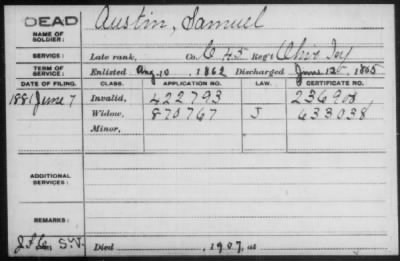 DEAD Austin, Samuel
NAME OF SOLDIER:
SERVICE: Late rank, Co. C 45 Reg't Ohio Inf
TERM OF SERVICE: Enlisted Aug. 10, 1862 Discharged June 12, 1865
DATE OF FILING. CLASS. APPLICATION NO. LAW. CERTIFICATE NO.
1881 June 7 Invalid, 422793 236908
Widow, 870767 J 633038
Minor,
ADDITIONAL SERVICES:
REMARKS:
Died 1907, at